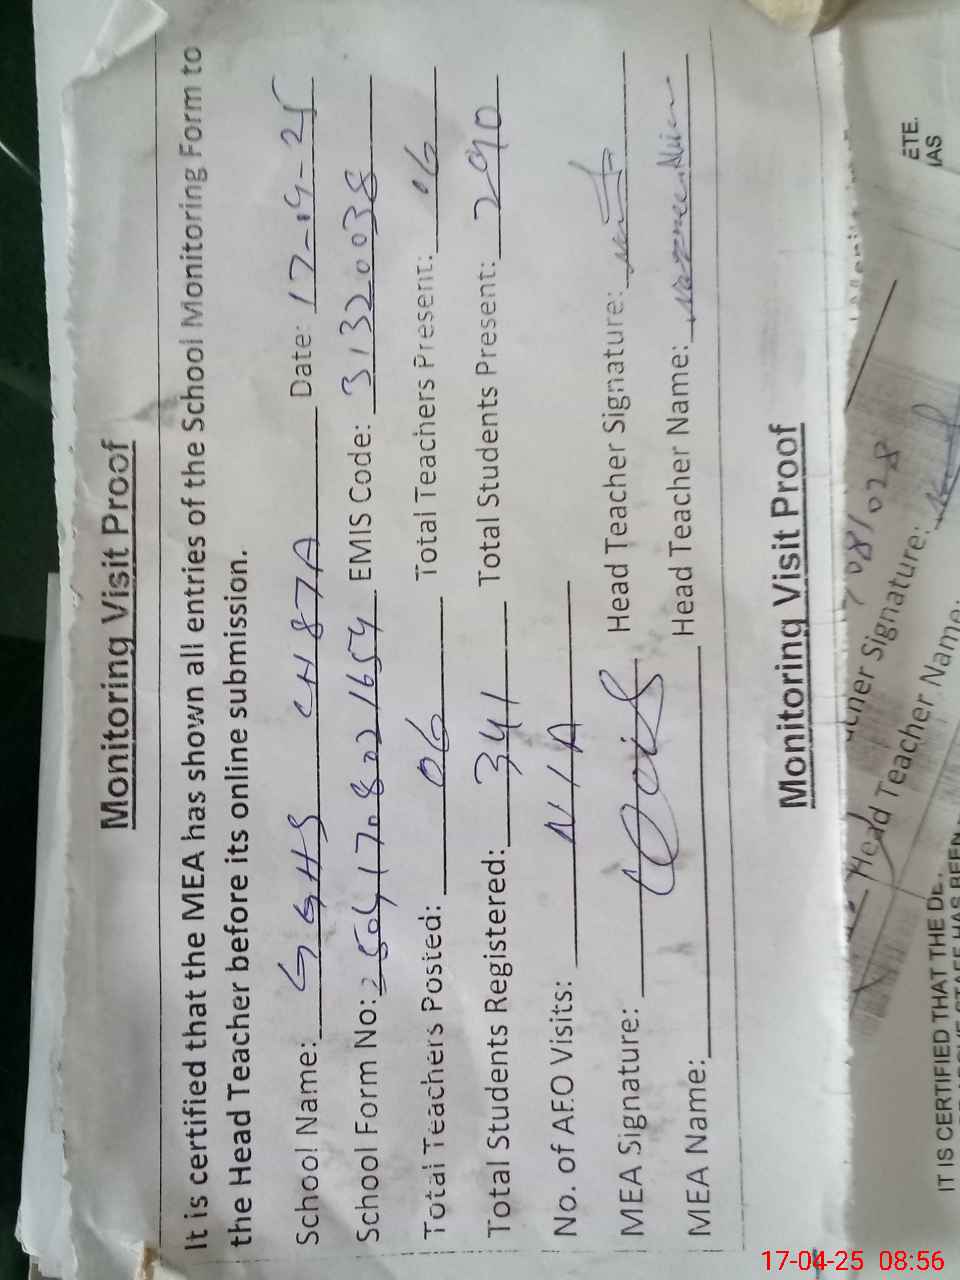 Monitoring Visit Proof
It is certified that the MEA has shown all entries of the School Monitoring Form to
the Head Teacher before its online submission.
School Name: GGHS CH 87A Date: 17-04-25
School Form No: 25041708021654 EMIS Code: 31320038
Total Teachers Posted: 06 Total Teachers Present: 06
Total Students Registered: 341 Total Students Present: 290
No. of AEO Visits: N/A
MEA Signature: Head Teacher Signature:
MEA Name: Head Teacher Name:
Monitoring Visit Proof
081028
acher Signature:
Head Teacher Name:
ETE.
IAS
IT IS CERTIFIED THAT THE DE
STAFF HAS BEEN
17-04-25 08:56